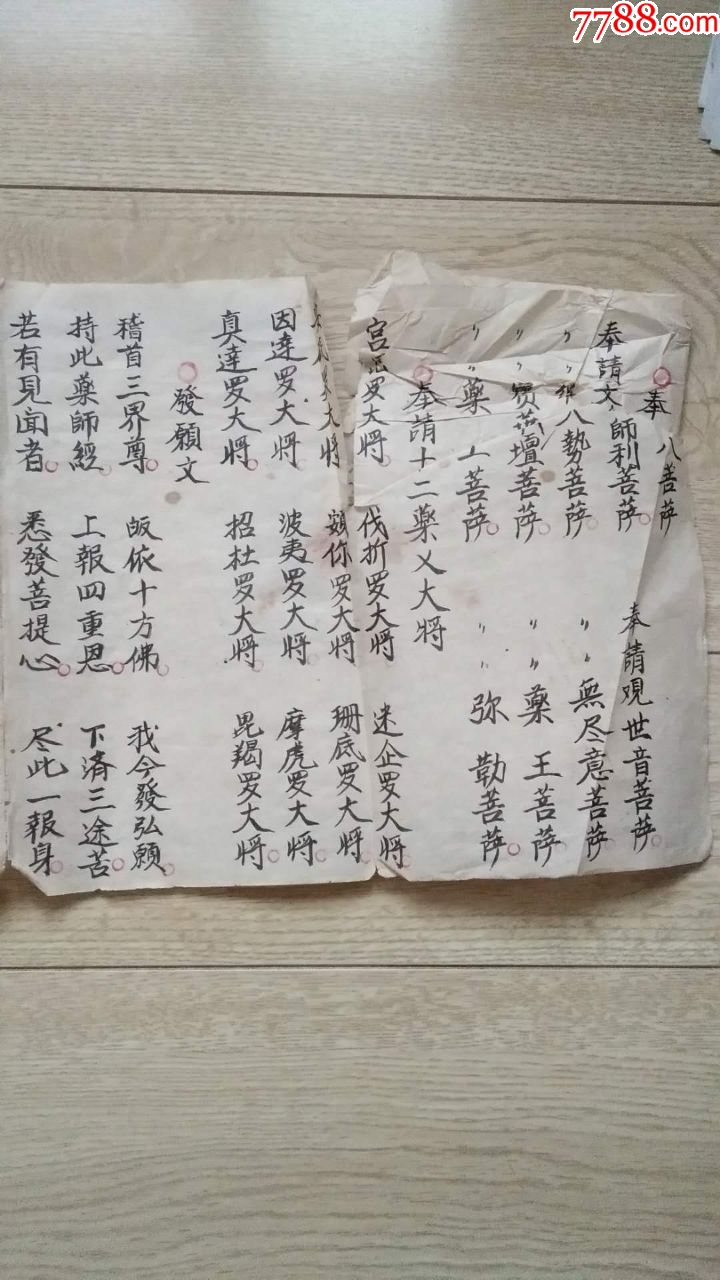 7788.com
奉 八菩薩
奉請文 師利菩薩 奉請观世音菩薩
〃 〃 八勢菩薩 〃 〃 無尽意菩薩
〃 〃 寶 壇菩薩 〃 〃 藥王菩薩
〃 〃 藥上菩薩 〃 〃 弥勒菩薩
奉請十二藥乂大將
宫 罗大將 伐折罗大將 迷企罗大將
大將 頞你罗大將 珊底罗大將
因達罗大將 波夷罗大將 摩虎罗大將
真達罗大將 招杜罗大將 毘羯罗大將
發願文
稽首三界尊 皈依十方佛 我今發弘願
持此藥師經 上報四重恩 下濟三途苦
若有見聞者 悉發菩提心 尽此一報身